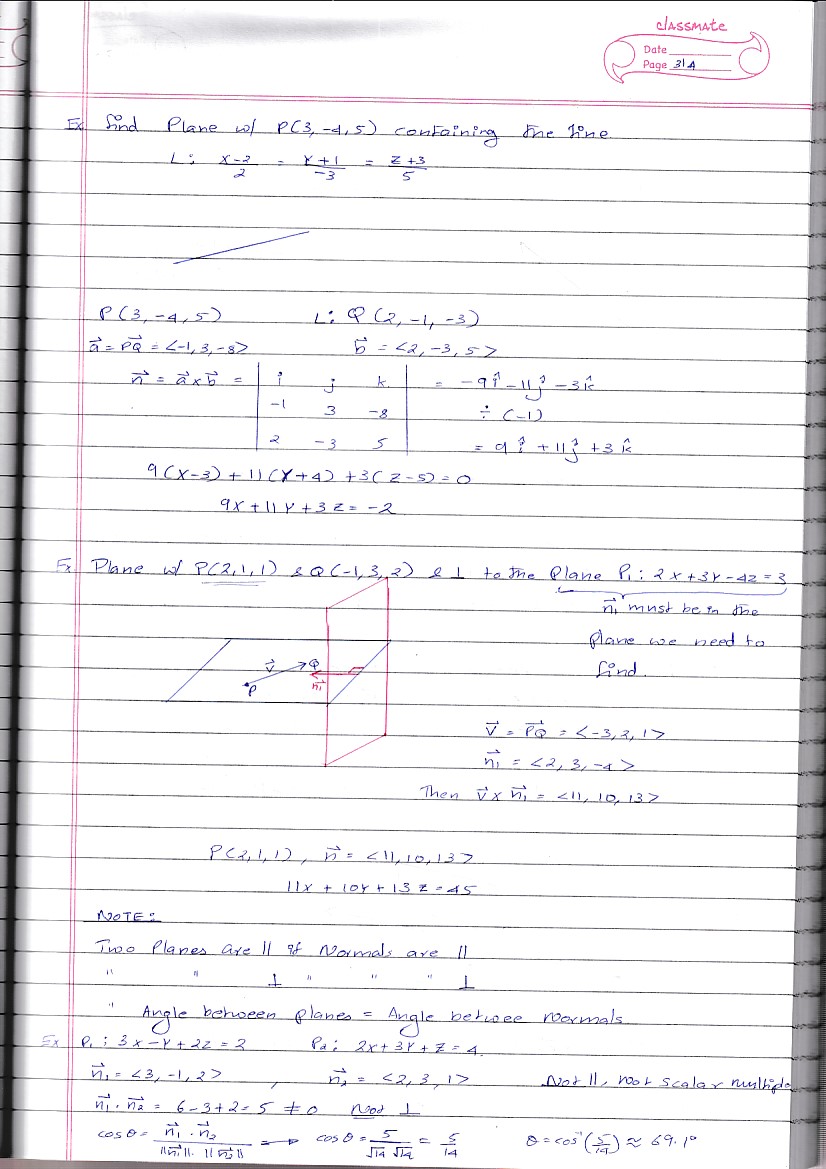 classmate
Date
Page 31A
Ex Find Plane w/ P(3,-4,5) containing the line
L: x-2/2 = Y+1/-3 = Z+3/5
P(3,-4,5) L: Q(2,-1,-3)
a⃗ = PQ⃗ = <-1,3,-8> b⃗ = <2,-3,5>
n⃗ = a⃗ x b⃗ = | i j k | = -9î -11ĵ -3k̂
-1 3 -8 ÷ (-1)
2 -3 5 = 9î +11ĵ +3k̂
9(x-3)+11(Y+4)+3(Z-5)=0
9x+11Y+3Z=-2
Ex Plane w/ P(2,1,1) & Q(-1,3,2) & ⊥ to the Plane P₁: 2x+3Y-4Z=3
n⃗₁ must be in the
plane we need to
find.
v⃗ Q
P n⃗₁
v⃗ = PQ⃗ = <-3,2,1>
n⃗₁ = <2,3,-4>
Then v⃗ x n⃗₁ = <11,10,13>
P(2,1,1), n⃗ = <11,10,13>
11x + 10Y + 13Z = 45
NOTE:
Two Planes are || if Normals are ||
" " ⊥ " " " ⊥
" Angle between planes = Angle betwee normals
Ex P₁: 3x-Y+2Z=2 P₂: 2x+3Y+Z=4
n⃗₁ = <3,-1,2> , n⃗₂ = <2,3,1> Not ||, not scalar multiple
n⃗₁ · n⃗₂ = 6-3+2=5 ≠0 Not ⊥
cosθ = n⃗₁ · n⃗₂ / ||n⃗₁|| · ||n⃗₂|| → cosθ = 5/√14 √14 = 5/14 θ = cos⁻¹(5/14) ≈ 69.1°